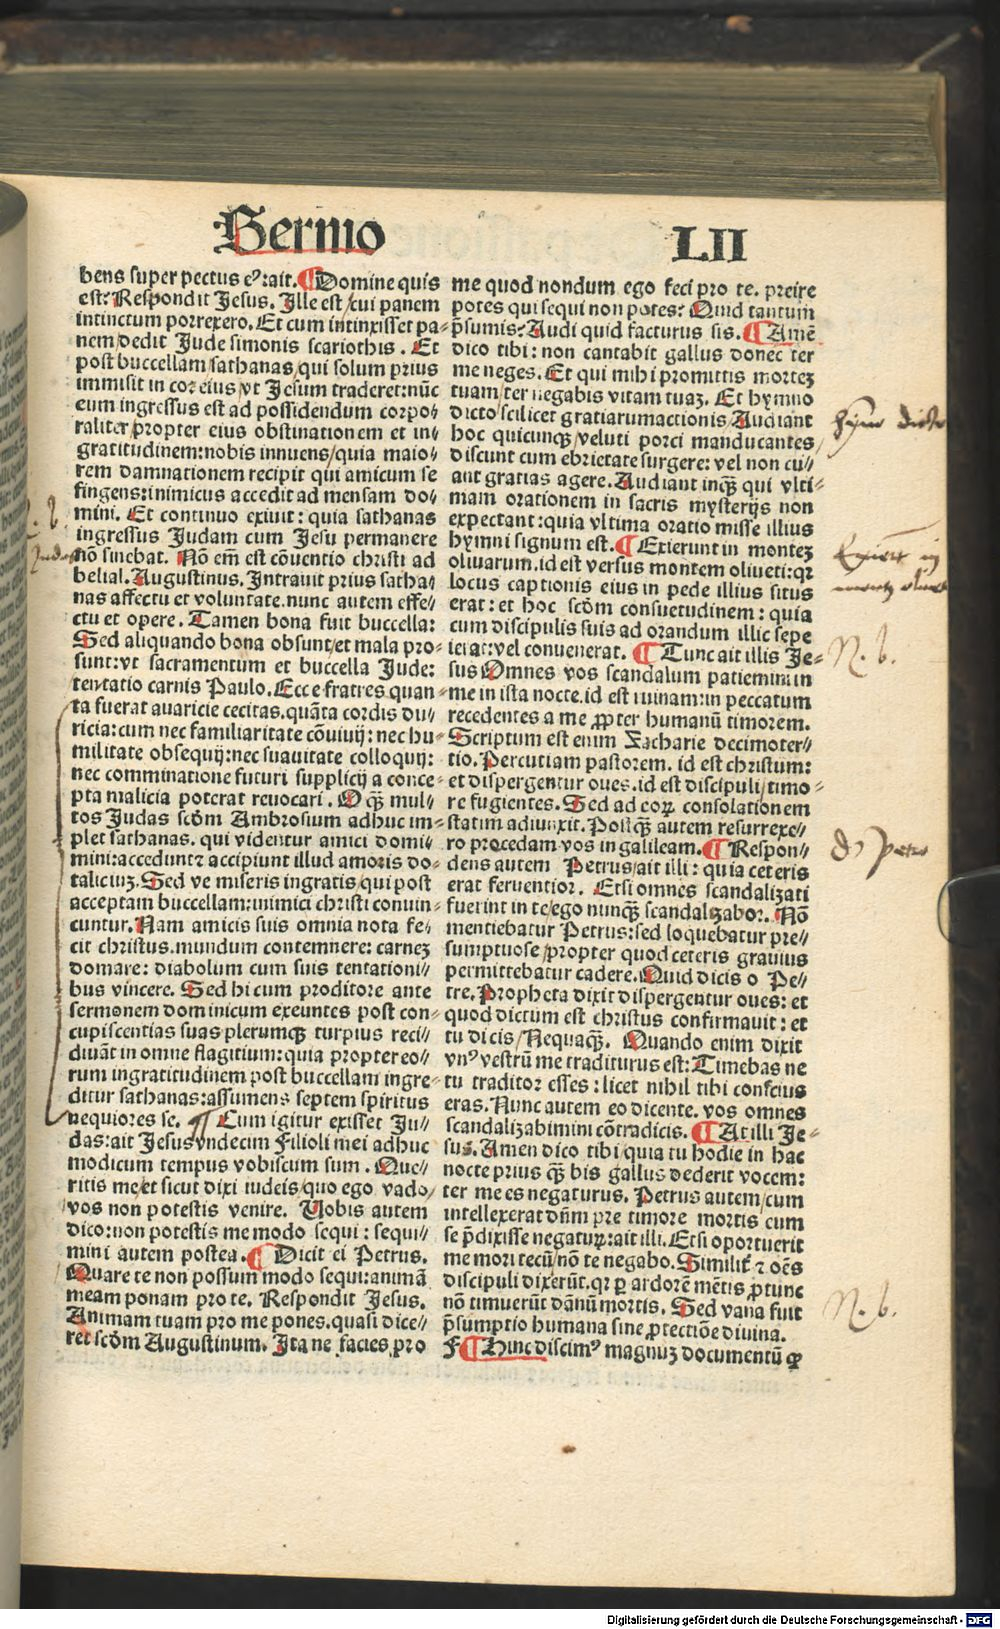 Sermo
LII
bens super pectus eꝰ: ait. ¶ Domine quis
est? Respondit Jesus. Ille est/cui panem
intinctum porrexero. Et cum intinxisset pa⸗
nem/dedit Jude simonis scariothis. Et
post buccellam/sathanas/qui solum prius
immisit in cor eius/vt Jesum traderet: nūc
eum ingressus est ad possidendum corpo⸗
raliter/propter eius obstinationem et in⸗
gratitudinem: nobis innuens/quia maio⸗
rem damnationem recipit qui amicum se
fingens: inimicus accedit ad mensam do⸗
mini. Et continuo exiuit: quia sathanas
ingressus Judam cum Jesu permanere
nō sinebat. Nō em̄ est cōuentio christi ad
belial. Augustinus. Intrauit prius satha⸗
nas affectu et voluntate. nunc autem effe⸗
ctu et opere. Tamen bona fuit buccella:
Sed aliquando bona obsunt/et mala pro⸗
sunt: vt sacramentum et buccella Jude:
tentatio carnis Paulo. Ecce fratres quan⸗
ta fuerat auaricie cecitas. quāta cordis du⸗
ricia: cum nec familiaritate cōuiuij: nec hu⸗
militate obsequij: nec suauitate colloquij:
nec comminatione futuri supplicij a conce⸗
pta malicia poterat reuocari. O qͣꝫ mul⸗
tos Judas scd̄m Ambrosium adhuc im⸗
plet sathanas. qui videntur amici domi⸗
mini: accedunt ⁊ accipiunt illud amoris do⸗
taliciuꝫ. Sed ve miseris ingratis/qui post
acceptam buccellam: inimici christi conuin⸗
cuntur. Nam amicis suis omnia nota fe⸗
cit christus. mundum contemnere: carneꝫ
domare: diabolum cum suis tentationi⸗
bus vincere. Sed hi cum proditore ante
sermonem dominicum exeuntes post con⸗
cupiscentias suas plerumqꝫ turpius reci⸗
diuāt in omne flagitium: quia propter eo⸗
rum ingratitudinem post buccellam ingre⸗
ditur sathanas: assumens septem spiritus
nequiores se. ¶ Cum igitur exisset Ju⸗
das: ait Jesus vndecim Filioli mei adhuc
modicum tempus vobiscum sum. Que⸗
ritis me/et sicut dixi iudeis/quo ego vado/
vos non potestis venire. Uobis autem
dico: non potestis me modo sequi: sequi⸗
mini autem postea. ¶ Dicit ei Petrus.
Quare te non possum modo sequi: animā
meam ponam pro te. Respondit Jesus.
Animam tuam pro me pones. quasi dice⸗
ret scd̄m Augustinum. Ita ne facies pro
me quod nondum ego feci pro te. preire
potes qui sequi non potes? Quid tantum
p̄sumis? Audi quid facturus sis. ¶ Amē
dico tibi: non cantabit gallus donec ter
me neges. Et qui mihi promittis morteꝫ
tuam/ter negabis vitam tuaꝫ. Et hymno
dicto/scilicet gratiarumactionis/Audiant
hoc quicunqꝫ/veluti porci manducantes/
discunt cum ebrietate surgere: vel non cu⸗
ant gratias agere. Audiant inqͣꝫ qui vlti⸗
mam orationem in sacris mysterijs non
expectant: quia vltima oratio misse illius
hymni signum est. ¶ Exierunt in monteꝫ
oliuarum. id est versus montem oliueti: qꝛ
locus captionis eius in pede illius situs
erat: et hoc scd̄m consuetudinem: quia
cum discipulis suis ad orandum illic sepe
ierat: vel conuenerat. ¶ Tunc ait illis Je⸗
sus Omnes vos scandalum patiemini in
me in ista nocte. id est ruinam: in peccatum
recedentes a me ꝓpter humanū timorem.
Scriptum est enim Zacharie decimoter⸗
tio. Percutiam pastorem. id est christum:
et dispergentur oues. id est discipuli/timo⸗
re fugientes. Sed ad eoꝝ consolationem
statim adiunxit. Postqͣꝫ autem resurrexe⸗
ro procedam vos in galileam. ¶ Respon⸗
dens autem Petrus/ait illi: quia ceteris
erat feruentior. Etsi omnes scandalizati
fuerint in te/ego nunqͣꝫ scandalizabor. Nō
mentiebatur Petrus: sed loquebatur pre⸗
sumptuose/propter quod ceteris grauius
permittebatur cadere. Quid dicis o Pe⸗
tre. Propheta dixit dispergentur oues: et
quod dictum est christus confirmauit: et
tu dicis/Nequaqͣꝫ. Quando enim dixit
vnꝰ vestrū me traditurus est: Timebas ne
tu traditor esses: licet nihil tibi conscius
eras. Nunc autem eo dicente. vos omnes
scandalizabimini cōtradicis. ¶ At illi Je⸗
sus. Amen dico tibi/quia tu hodie in hac
nocte prius qͣꝫ bis gallus dederit vocem:
ter me es negaturus. Petrus autem/cum
intellexerat dn̄m pre timore mortis cum
se p̄dixisse negatuꝝ: ait illi. Etsi oportuerit
me mori tecū/nō te negabo. Similit̄ ⁊ oēs
discipuli dixerūt. qꝛ ꝑ ardorē mētis ꝓtunc
nō timuerūt dānū mortis. Sed vana fuit
p̄sumptio humana sine ꝓtectiōe diuina.
F ¶ Hinc discimꝰ magnuꝫ documentū ꝙ
N. b.
N. b.
Digitalisierung gefördert durch die Deutsche Forschungsgemeinschaft - DFG